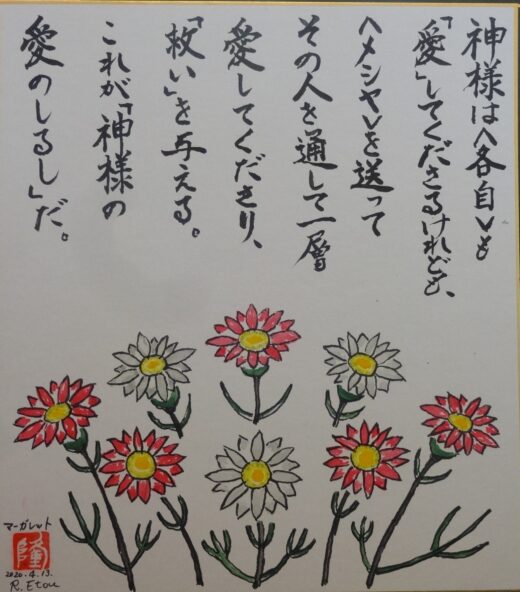 神様は〈各自〉も
「愛」してくださるけれども、
〈メシヤ〉を送って
その人を通して一層
愛してくださり、
「救い」を与える。
これが「神様の
愛のしるし」だ。
マーガレット
隆
2020.4.13.
R.Etou